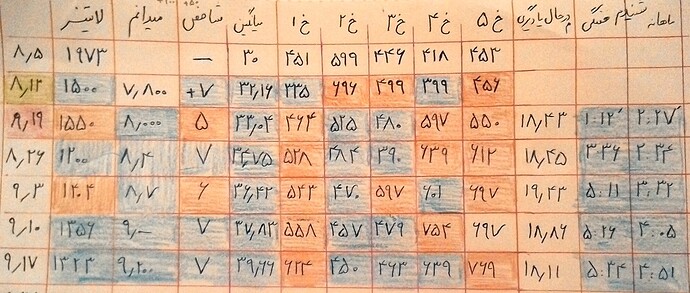 لایتنر میدانم شاخص میانگین خ ۱ خ ۲ خ ۳ خ ۴ خ ۵ درحال یادگیری هفتگی شنیدم ماهانه
۸,۵ ۱۹۷۳ — ۳۰ ۴۵۱ ۵۹۹ ۴۴۶ ۴۱۸ ۴۵۳
۸,۱۲ ۱۵۰۰ ۷,۸۰۰ +۷ ۳۲,۱۶ ۳۳۵ ۶۹۶ ۴۹۹ ۳۹۹ ۴۵۶
۸,۱۹ ۱۵۵۰ ۸,۰۰۰ ۵ ۳۳,۰۴ ۴۶۴ ۵۲۵ ۴۸۰ ۵۹۷ ۵۵۰ ۱۸,۴۳ ۱:۱۲′ ۲:۲۷′
۸,۲۶ ۱۲۰۰ ۸,۴ ۷ ۳۴,۷۵ ۵۲۸ ۴۸۴ ۳۹۰ ۶۳۹ ۶۱۲ ۱۸,۴۵ ۳:۳۶ ۲:۳۴
۹,۳ ۱۲۰۴ ۸,۷ ۶ ۳۶,۴۲ ۵۴۳ ۴۷۰ ۵۹۷ ۶۰۱ ۶۹۷ ۱۹,۴۳ ۵:۱۱ ۳:۳۲
۹,۱۰ ۱۳۵۶ ۹,۰۰ ۷ ۳۷,۸۳ ۵۵۸ ۴۵۷ ۴۷۹ ۷۵۴ ۶۹۷ ۱۸,۸۶ ۵:۲۶ ۴:۰۵
۹,۱۷ ۱۳۲۳ ۹,۲۰۰ ۷ ۳۹,۶۶ ۶۲۴ ۴۵۰ ۴۶۳ ۶۳۹ ۷۶۹ ۱۸,۱۱ ۵:۳۴ ۴:۵۱